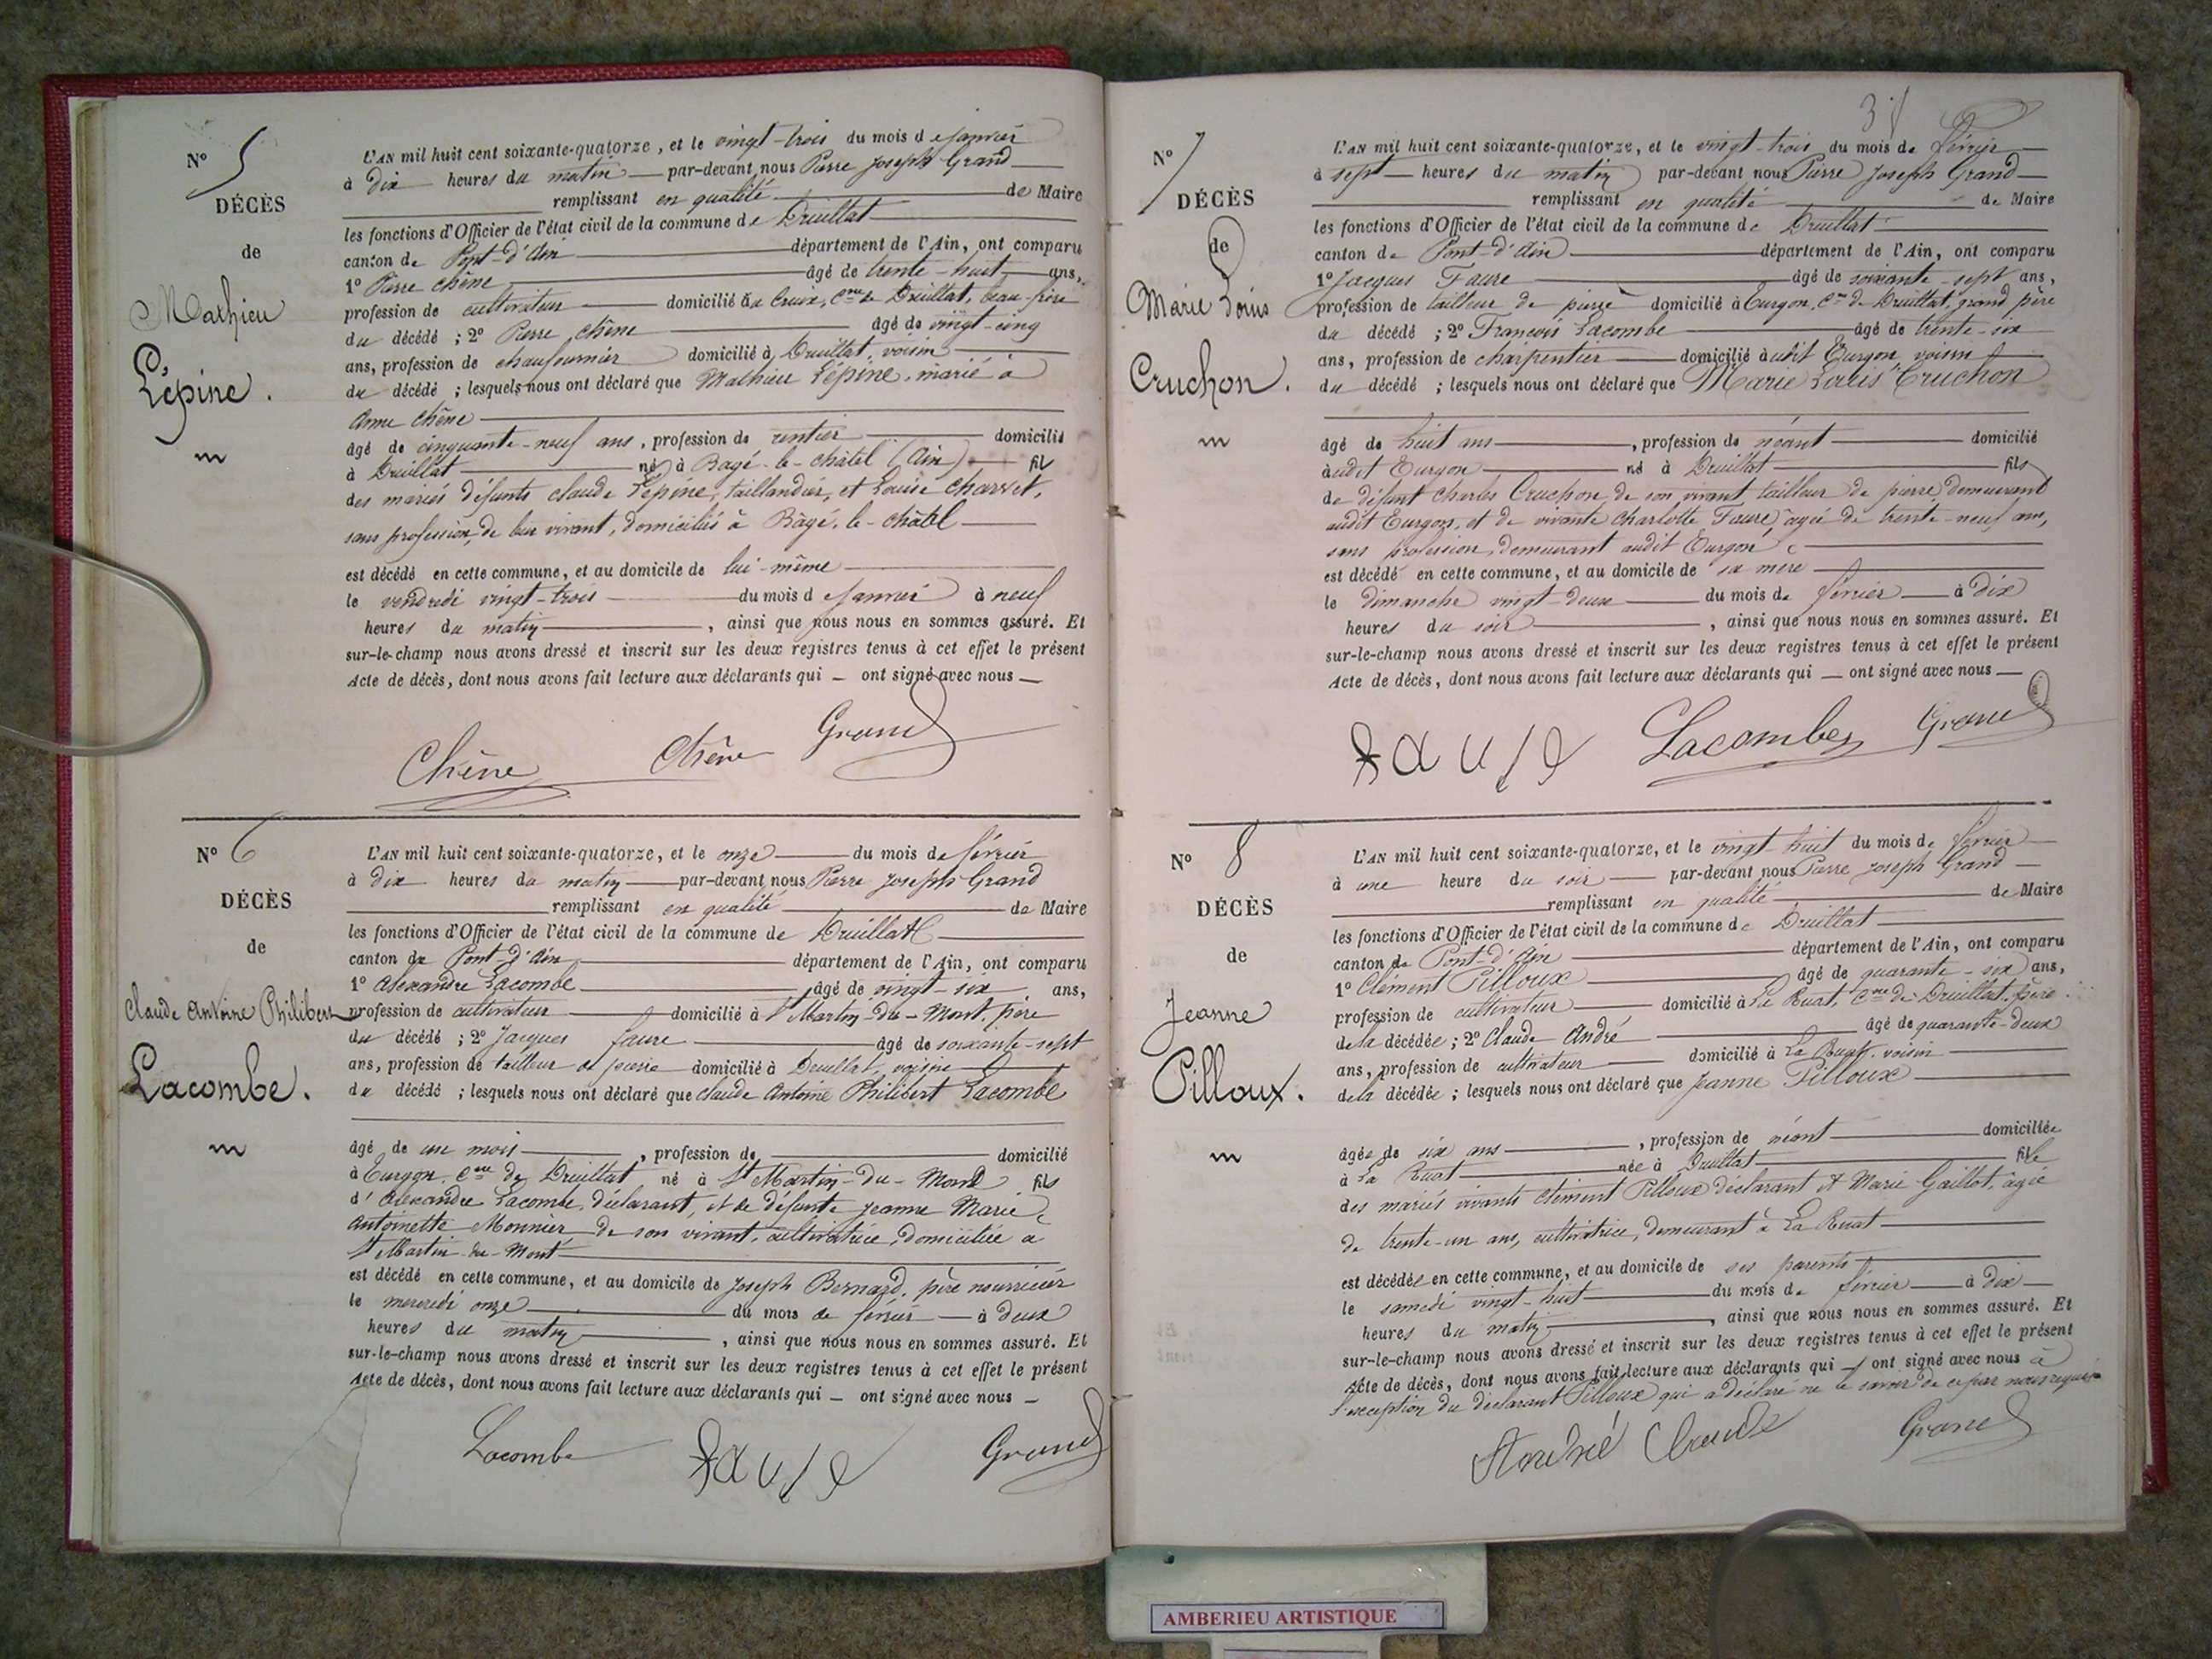 Nº 5
DÉCÈS
de
Mathieu
Lépine.
L'AN mil huit cent soixante-quatorze, et le vingt-trois du mois de Janvier
à dix heures du matin par-devant nous Pierre Joseph Grand
remplissant en qualité de Maire
les fonctions d'Officier de l'état civil de la commune de Druillat
canton de Pont-d'Ain département de l'Ain, ont comparu
1º Pierre Chêne âgé de trente-huit ans,
profession de cultivateur domicilié à la Croix, Cne de Druillat, beau-frère
du décédé ; 2º Pierre Chêne âgé de vingt-cinq
ans, profession de chaufournier domicilié à Druillat, voisin
du décédé ; lesquels nous ont déclaré que Mathieu Lépine, marié à
Anne Chêne
âgé de cinquante-neuf ans, profession de rentier domicilié
à Druillat né à Bagé-le-châtel (Ain) fils
des mariés défunts Claude Lépine, taillandier, et Louise Charvet,
sans profession, de leur vivant, domiciliés à Bâgé-le-châtel
est décédé en cette commune, et au domicile de lui-même
le vendredi vingt-trois du mois de Janvier à neuf
heures du matin, ainsi que nous nous en sommes assuré. Et
sur-le-champ nous avons dressé et inscrit sur les deux registres tenus à cet effet le présent
Acte de décès, dont nous avons fait lecture aux déclarants qui — ont signé avec nous —
Chêne Chêne Grand
Nº 6
DÉCÈS
de
Claude Antoine Philibert
Lacombe.
L'AN mil huit cent soixante-quatorze, et le onze du mois de février
à dix heures du matin par-devant nous Pierre Joseph Grand
remplissant en qualité de Maire
les fonctions d'Officier de l'état civil de la commune de Druillat
canton de Pont-d'Ain département de l'Ain, ont comparu
1º Alexandre Lacombe âgé de vingt-six ans,
profession de cultivateur domicilié à St Martin-du-Mont, père
du décédé ; 2º Jacques Faure âgé de soixante-sept
ans, profession de tailleur de pierre domicilié à Druillat, voisin
du décédé ; lesquels nous ont déclaré que Claude Antoine Philibert Lacombe
âgé de un mois, profession de domicilié
à Turgon, Cne de Druillat né à St Martin-du-Mont fils
d'Alexandre Lacombe, déclarant, et de défunte Jeanne Marie
Antoinette Monnier de son vivant, cultivatrice, domiciliée à
St Martin-du-Mont
est décédé en cette commune, et au domicile de Joseph Bernard, père nourricier
le mercredi onze du mois de février à deux
heures du matin, ainsi que nous nous en sommes assuré. Et
sur-le-champ nous avons dressé et inscrit sur les deux registres tenus à cet effet le présent
Acte de décès, dont nous avons fait lecture aux déclarants qui — ont signé avec nous —
Lacombe Faure Grand
Nº 7
DÉCÈS
de
Marie Louis
Cruchon.
L'AN mil huit cent soixante-quatorze, et le vingt-trois du mois de Février
à sept heures du matin par-devant nous Pierre Joseph Grand
remplissant en qualité de Maire
les fonctions d'Officier de l'état civil de la commune de Druillat
canton de Pont-d'Ain département de l'Ain, ont comparu
1º Jacques Faure âgé de soixante-sept ans,
profession de tailleur de pierre domicilié à Turgon, Cne de Druillat, grand père
du décédé ; 2º François Lacombe âgé de trente-six
ans, profession de charpentier domicilié audit Turgon voisin
du décédé ; lesquels nous ont déclaré que Marie Louis Cruchon
âgé de huit ans, profession de néant domicilié
audit Turgon né à Druillat fils
de défunt Charles Cruchon, de son vivant tailleur de pierre, demeurant
audit Turgon, et de vivante Charlotte Faure, agée de trente-neuf ans,
sans profession, demeurant audit Turgon
est décédé en cette commune, et au domicile de sa mère
le dimanche vingt-deux du mois de février à dix
heures du soir, ainsi que nous nous en sommes assuré. Et
sur-le-champ nous avons dressé et inscrit sur les deux registres tenus à cet effet le présent
Acte de décès, dont nous avons fait lecture aux déclarants qui — ont signé avec nous —
Faure Lacombe Grand
Nº 8
DÉCÈS
de
Jeanne
Pilloux.
L'AN mil huit cent soixante-quatorze, et le vingt huit du mois de février
à une heure du soir par-devant nous Pierre Joseph Grand
remplissant en qualité de Maire
les fonctions d'Officier de l'état civil de la commune de Druillat
canton de Pont-d'Ain département de l'Ain, ont comparu
1º Clément Pilloux âgé de quarante-six ans,
profession de cultivateur domicilié à Le Ruat, Cne de Druillat, père
de la décédée ; 2º Claude André âgé de quarante-deux
ans, profession de cultivateur domicilié à La Ruat, voisin
de la décédée ; lesquels nous ont déclaré que Jeanne Pilloux
âgée de six ans, profession de néant domiciliée
à La Ruat née à Druillat fille
des mariés vivants Clément Pilloux déclarant et Marie Gaillot, agée
de trente-un ans, cultivatrice, demeurant à La Ruat
est décédée en cette commune, et au domicile de ses parents
le samedi vingt-huit du mois de février à dix
heures du matin, ainsi que nous nous en sommes assuré. Et
sur-le-champ nous avons dressé et inscrit sur les deux registres tenus à cet effet le présent
Acte de décès, dont nous avons fait lecture aux déclarants qui — ont signé avec nous à
l'exception du déclarant Pilloux qui a déclaré ne le savoir de ce par nous requis
André Claude Grand
AMBERIEU ARTISTIQUE